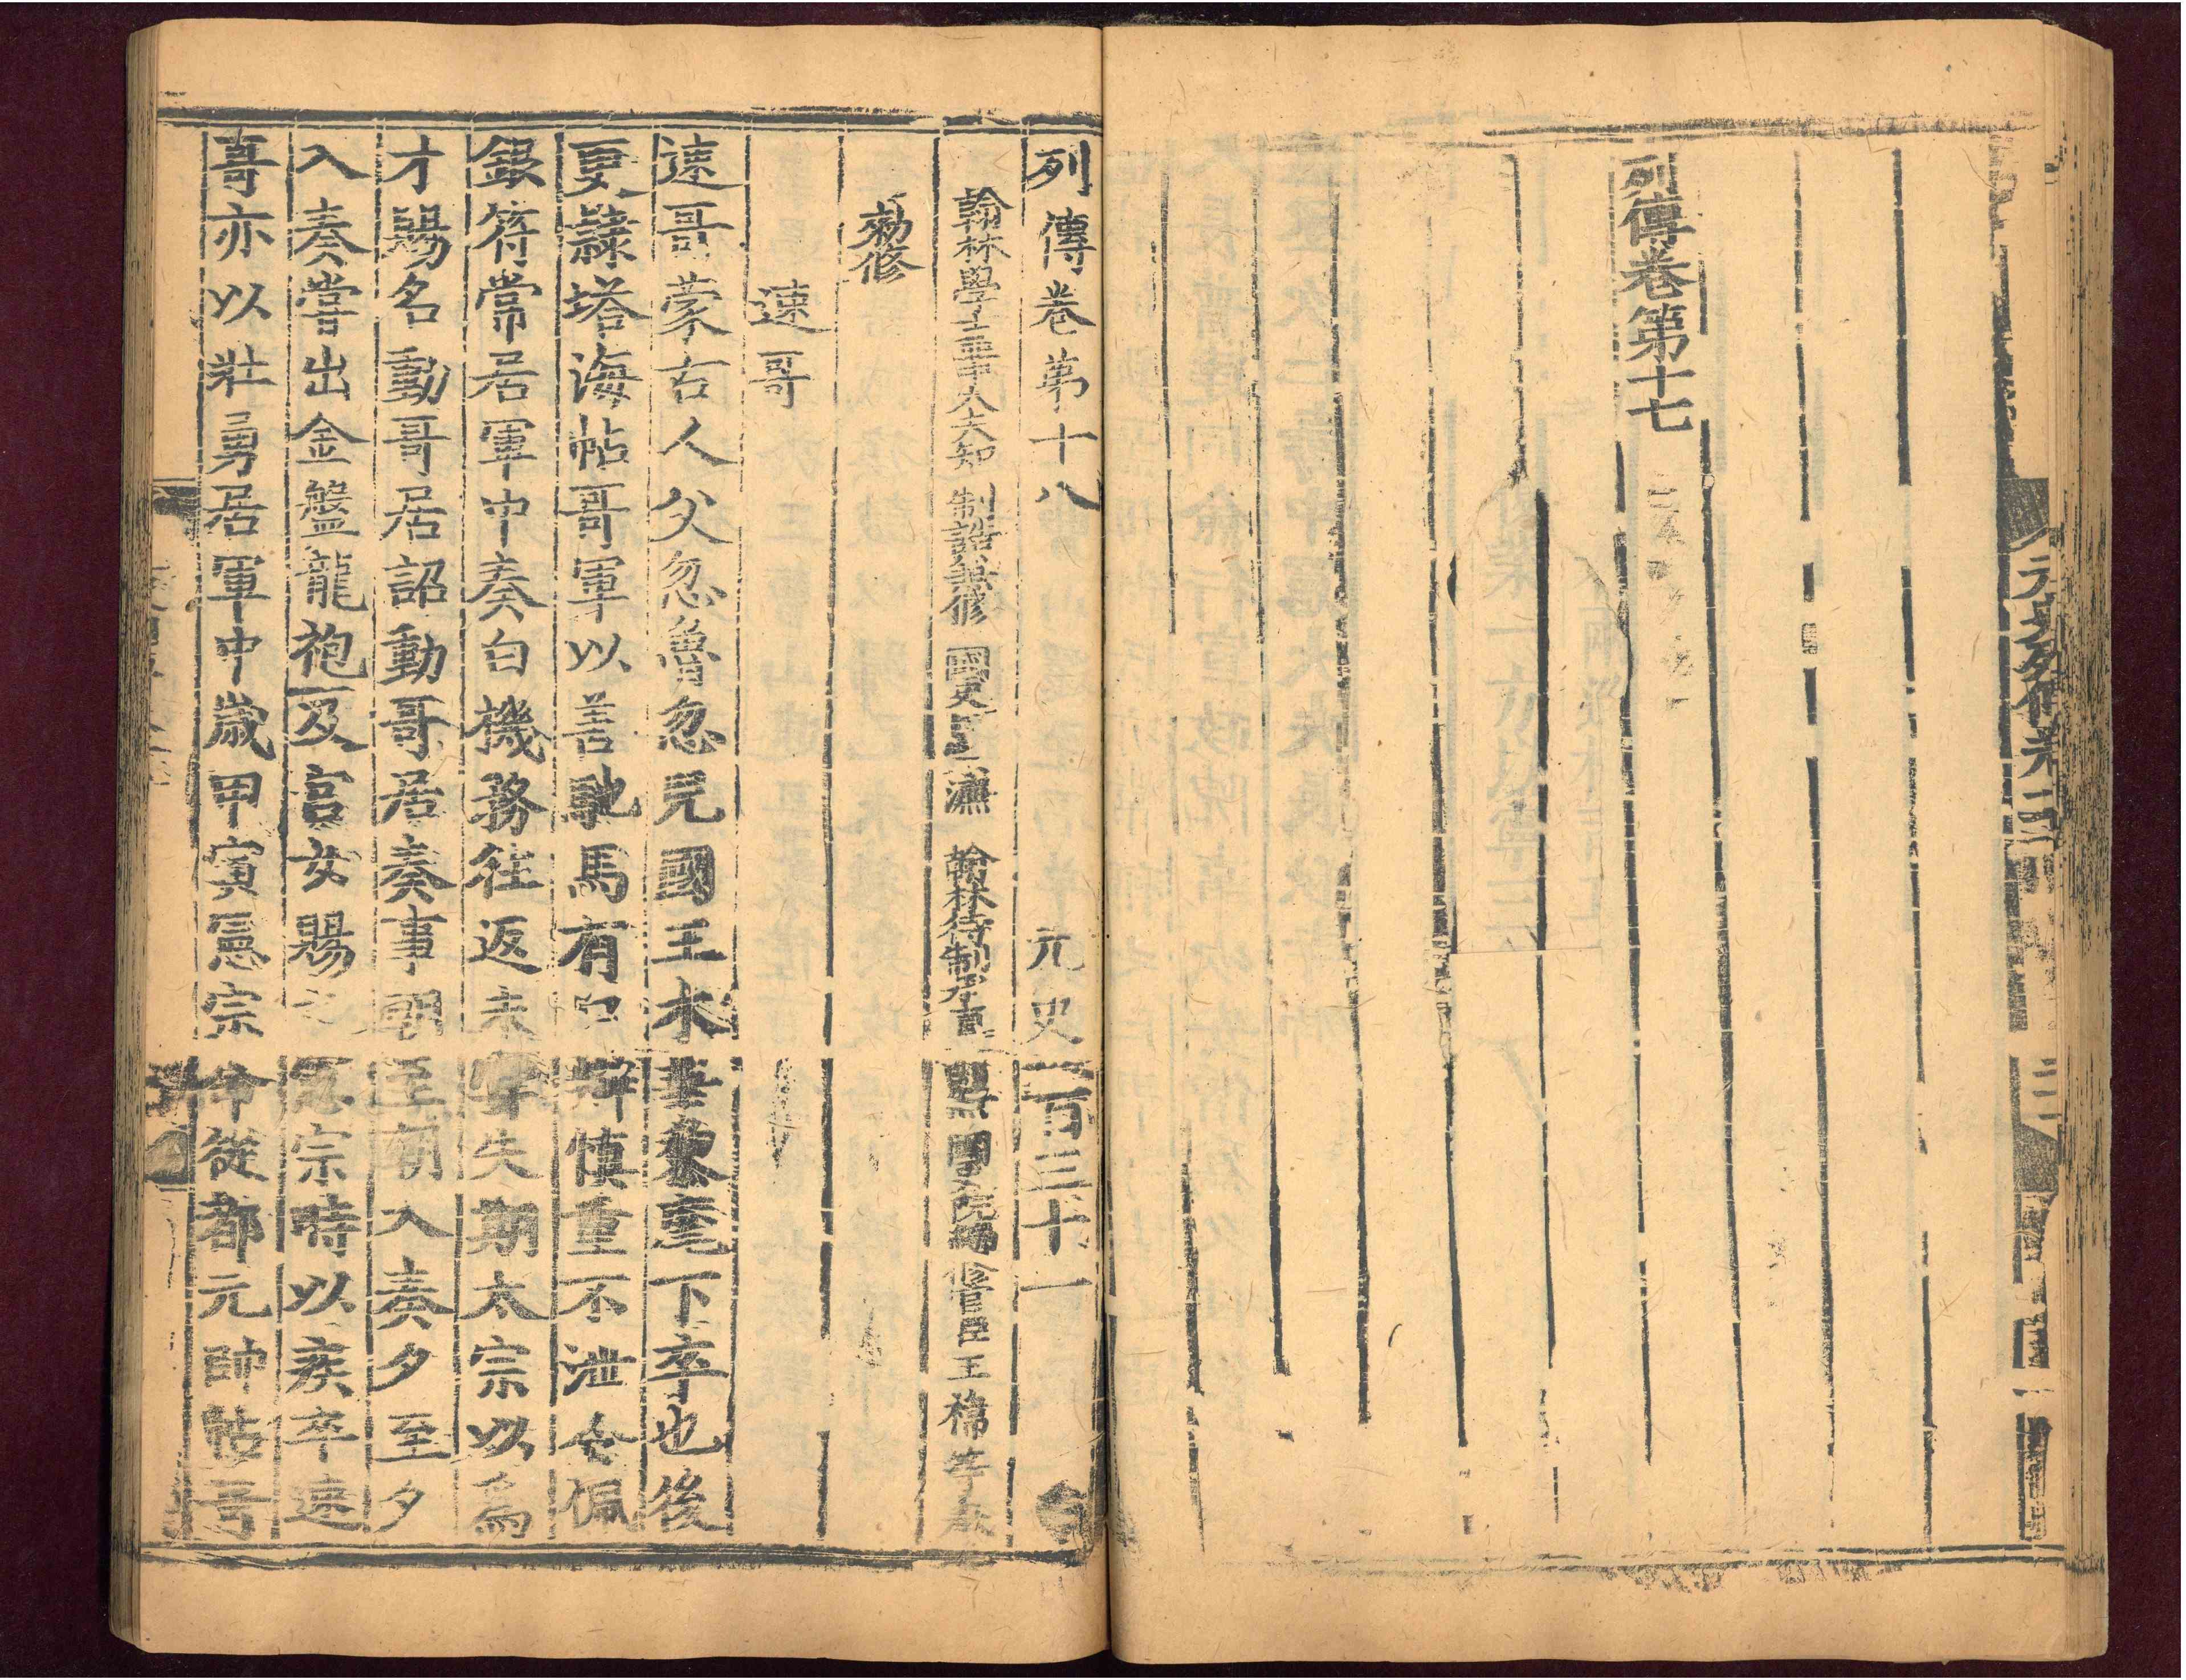 列傳卷第十七
列傳卷第十八 元史一百三十一
翰林學士亞中大夫知制誥兼修國史臣宋濂 翰林待制承直郎同知制誥兼國史院編修官臣王褘等奉
勑修
速哥
速哥蒙古人父忽魯忽兒國王木華黎麾下卒也後
更隸塔海帖哥軍以善馳馬有口辯慎重不泄令佩
銀符常居軍中奏白機務往返未嘗失期太宗以爲
才賜名動哥居詔動哥居奏事朝至朝入奏夕至夕
入奏嘗出金盤龍袍及宮女賜之憲宗時以疾卒速
哥亦以壯勇居軍中歲甲寅憲宗命從都元帥帖哥